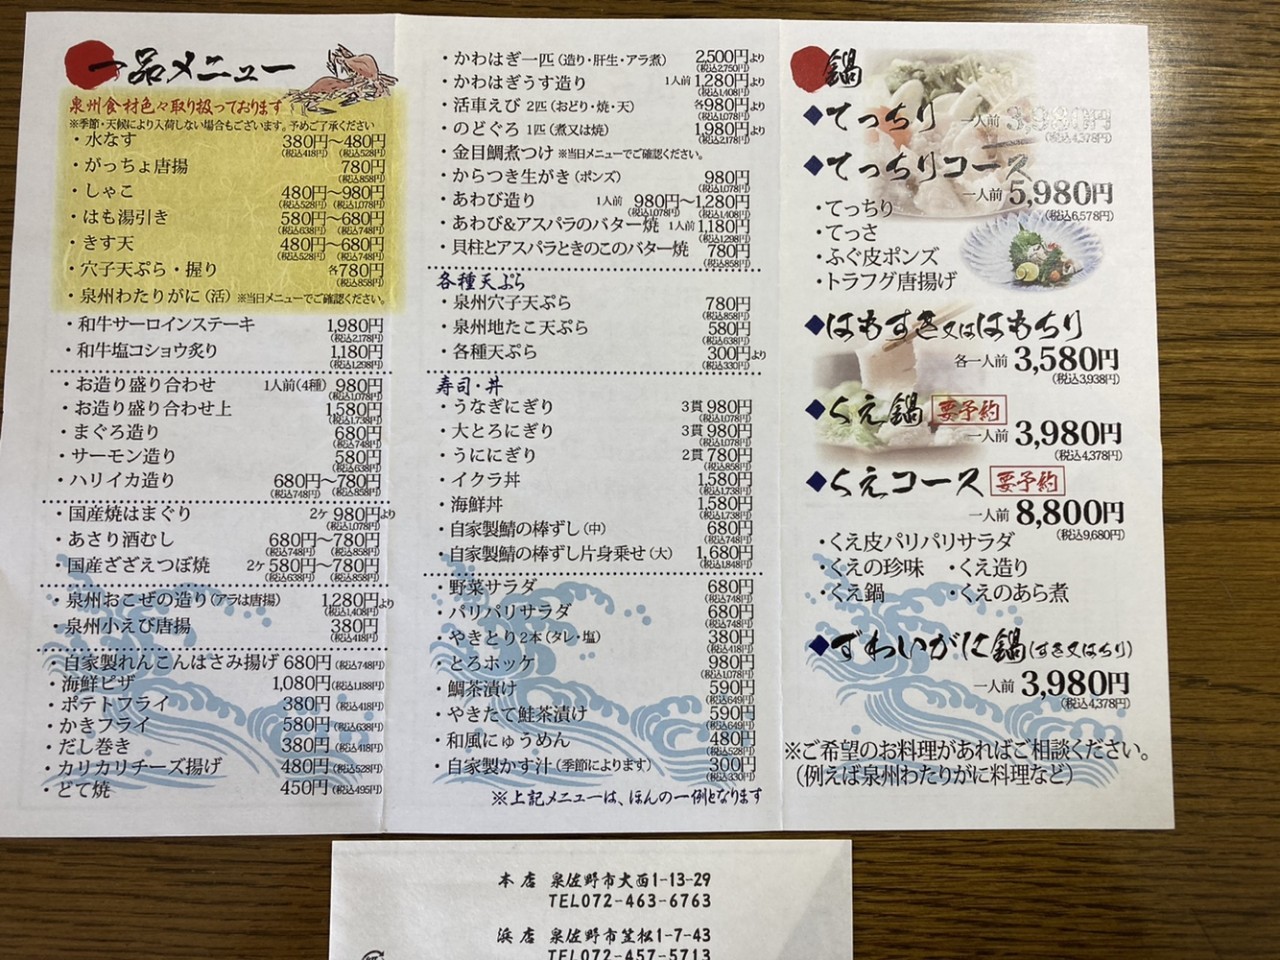 一品メニュー
泉州食材色々取り扱っております
※季節・天候により入荷しない場合もございます。予めご了承ください
・水なす 380円〜480円
(税込418円) (税込528円)
・がっちょ唐揚 780円
(税込858円)
・しゃこ 480円〜980円
(税込528円) (税込1,078円)
・はも湯引き 580円〜680円
(税込638円) (税込748円)
・きす天 480円〜680円
(税込528円) (税込748円)
・穴子天ぷら・握り 各780円
(税込858円)
・泉州わたりがに(活) ※当日メニューでご確認ください。
・和牛サーロインステーキ 1,980円
(税込2,178円)
・和牛塩コショウ炙り 1,180円
(税込1,298円)
・お造り盛り合わせ 1人前(4種) 980円
(税込1,078円)
・お造り盛り合わせ上 1,580円
(税込1,738円)
・まぐろ造り 680円
(税込748円)
・サーモン造り 580円
(税込638円)
・ハリイカ造り 680円〜780円
(税込748円) (税込858円)
・国産焼はまぐり 2ケ 980円より
(税込1,078円)
・あさり酒むし 680円〜780円
(税込748円) (税込858円)
・国産さざえつぼ焼 2ケ 580円〜780円
(税込638円) (税込858円)
・泉州おこぜの造り(アラは唐揚) 1,280円より
(税込1,408円)
・泉州小えび唐揚 380円
(税込418円)
・自家製れんこんはさみ揚げ 680円(税込748円)
・海鮮ピザ 1,080円(税込1,188円)
・ポテトフライ 380円(税込418円)
・かきフライ 580円(税込638円)
・だし巻き 380円(税込418円)
・カリカリチーズ揚げ 480円(税込528円)
・どて焼 450円(税込495円)
・かわはぎ一匹(造り・肝生・アラ煮) 2,500円より
(税込2,750円)
・かわはぎうす造り 1人前 1,280円より
(税込1,408円)
・活車えび 2匹(おどり・焼・天) 各980円より
(税込1,078円)
・のどぐろ 1匹(煮又は焼) 1,980円より
(税込2,178円)
・金目鯛煮つけ ※当日メニューでご確認ください。
・からつき生がき(ポンズ) 980円
(税込1,078円)
・あわび造り 1人前 980円〜1,280円
(税込1,078円) (税込1,408円)
・あわび&アスパラのバター焼 1人前 1,180円
(税込1,298円)
・貝柱とアスパラときのこのバター焼 780円
(税込858円)
各種天ぷら
・泉州穴子天ぷら 780円
(税込858円)
・泉州地たこ天ぷら 580円
(税込638円)
・各種天ぷら 300円より
(税込330円)
寿司・丼
・うなぎにぎり 3貫 980円
(税込1,078円)
・大とろにぎり 3貫 980円
(税込1,078円)
・うににぎり 2貫 780円
(税込858円)
・イクラ丼 1,580円
(税込1,738円)
・海鮮丼 1,580円
(税込1,738円)
・自家製鯖の棒ずし(中) 680円
(税込748円)
・自家製鯖の棒ずし片身乗せ(大) 1,680円
(税込1,848円)
・野菜サラダ 680円
(税込748円)
・パリパリサラダ 680円
(税込748円)
・やきとり 2本(タレ・塩) 380円
(税込418円)
・とろホッケ 980円
(税込1,078円)
・鯛茶漬け 590円
(税込649円)
・やきたて鮭茶漬け 590円
(税込649円)
・和風にゅうめん 480円
(税込528円)
・自家製かす汁(季節によります) 300円
(税込330円)
※上記メニューは、ほんの一例となります
鍋
◆てっちり 一人前 3,980円
(税込4,378円)
◆てっちりコース
一人前 5,980円
(税込6,578円)
・てっちり
・てっさ
・ふぐ皮ポンズ
・トラフグ唐揚げ
◆はもすき又ははもちり
各一人前 3,580円
(税込3,938円)
◆くえ鍋 要予約
一人前 3,980円
(税込4,378円)
◆くえコース 要予約
一人前 8,800円
(税込9,680円)
・くえ皮パリパリサラダ
・くえの珍味 ・くえ造り
・くえ鍋 ・くえのあら煮
◆ずわいがに鍋(すき又はちり)
一人前 3,980円
(税込4,378円)
※ご希望のお料理があればご相談ください。
(例えば泉州わたりがに料理など)
本店 泉佐野市大西1-13-29
TEL072-463-6763
浜店 泉佐野市笠松1-7-43
TEL072-457-5713